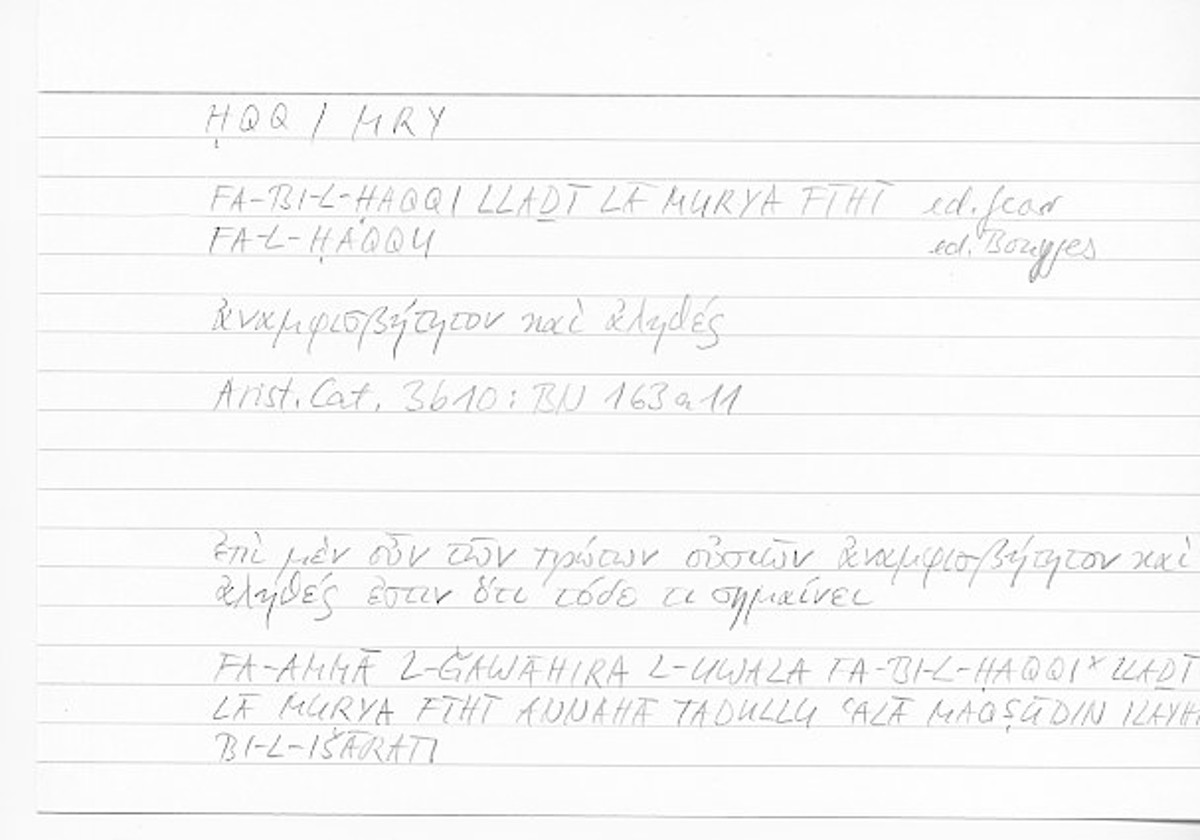 ḤQQ / MRY
FA-BI-L-ḤAQQI LLAḎĪ LĀ MURYA FĪHI ed. Georr
FA-L-ḤAQQU ed. Bouyges
ἀναμφισβήτητον καὶ ἀληθές
Arist. Cat. 3b10 : BN 163a11
ἐπὶ μὲν οὖν τῶν πρώτων οὐσιῶν ἀναμφισβήτητον καὶ
ἀληθές ἐστιν ὅτι τόδε τι σημαίνει
FA-AMMĀ L-ǦAWĀHIRA L-UWALA FA-BI-L-ḤAQQIˣ LLAḎĪ
LĀ MURYA FĪHĪ ANNAHĀ TADULLU ʿALĀ MAQṢŪDIN ILAYH
BI-L-IŠĀRATI